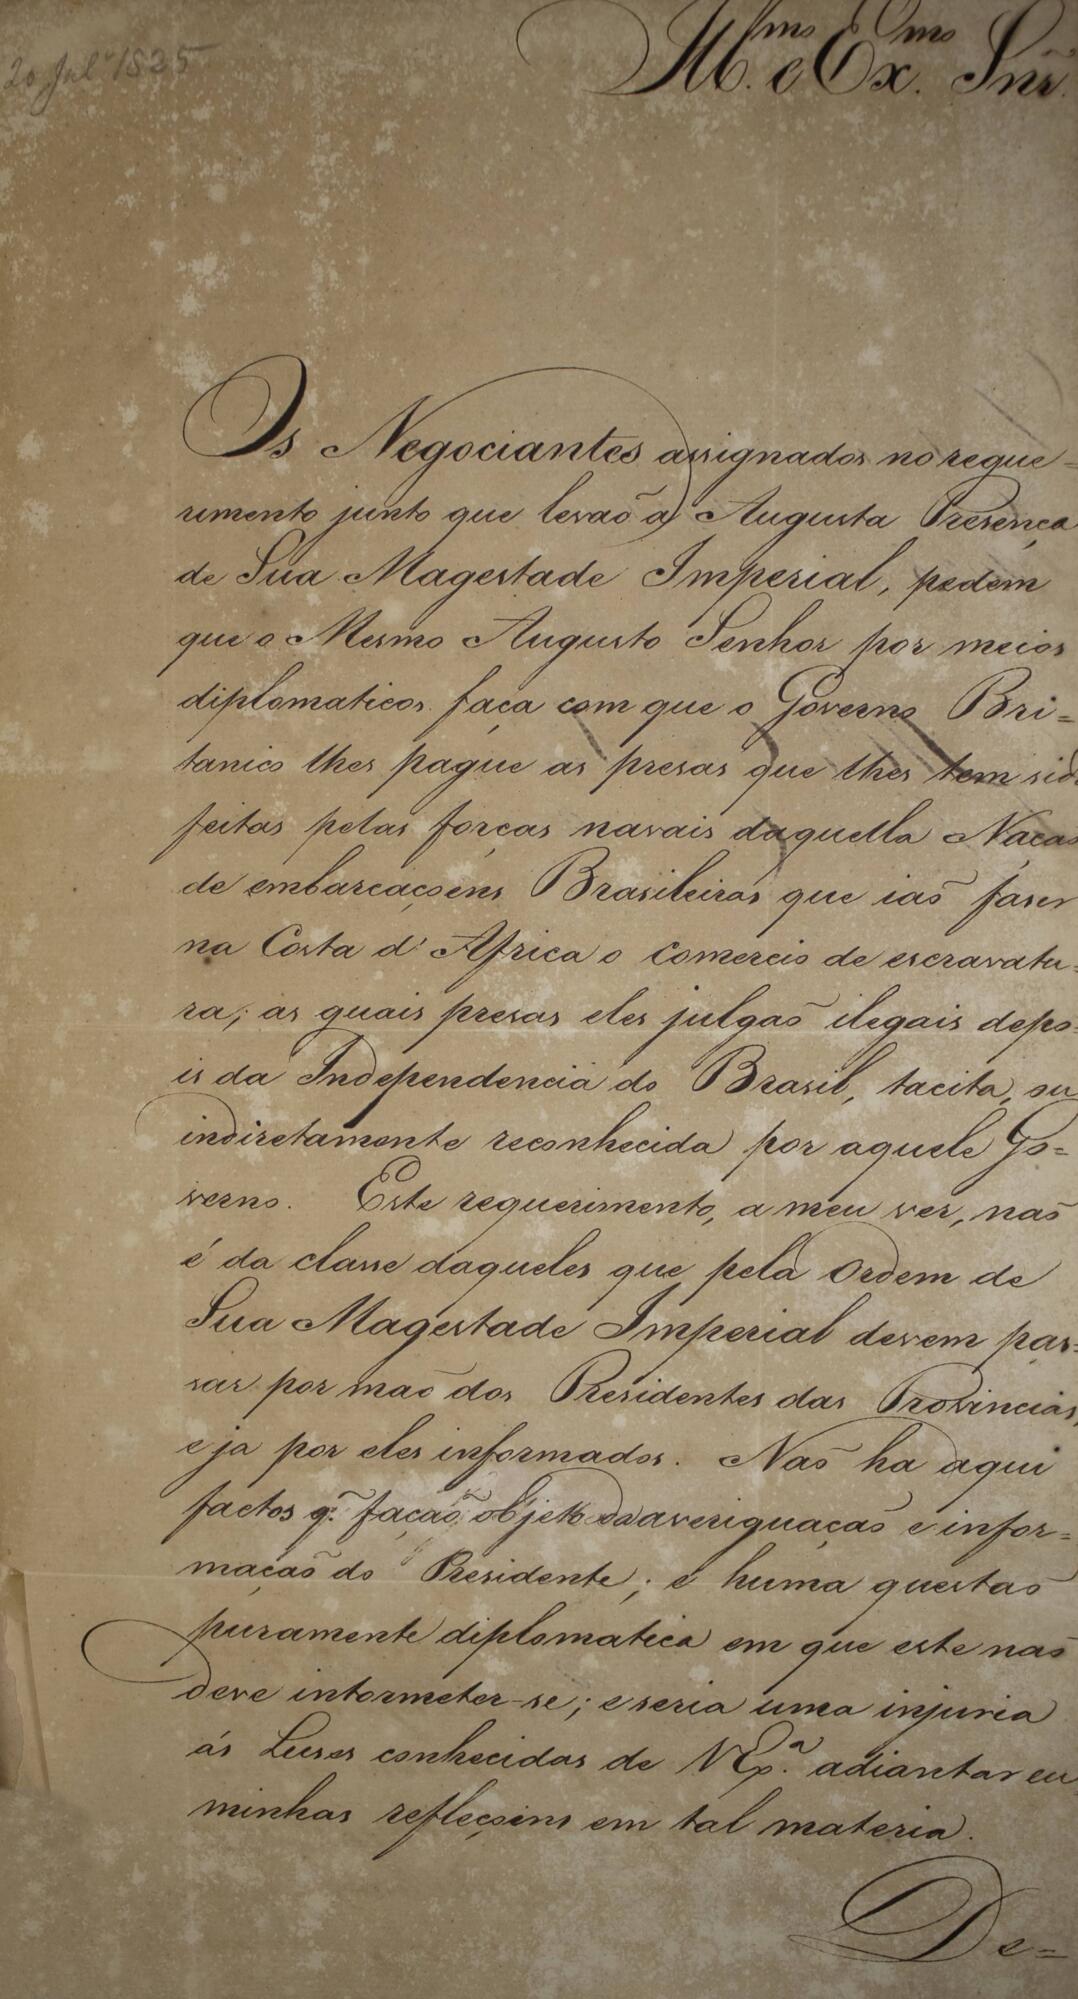 20 Jul 1825
Ill.mo e Ex.mo Snr.
Os Negociantes assignados no reque=
rimento junto que levaõ a Augusta Presença
de Sua Magestade Imperial, pedem
que o Mesmo Augusto Senhor por meios
diplomaticos faça com que o Governo Bri=
tanico lhes pague as presas que lhes tem sido
feitas pelas forças navais daquella Naçaõ
de embarcaçoens Brasileiras que iaõ faser
na Costa d'Africa o comercio de escravatu=
ra; as quais presas eles julgaõ ilegais depo=
is da Independencia do Brasil, tacita, ou
indiretamente reconhecida por aquele Go=
verno. Este requerimento, a meu ver, naõ
é da classe daqueles que pela Ordem de
Sua Magestade Imperial devem pas=
sar por maõ dos Presidentes das Provincias,
e ja por eles informados. Naõ ha aqui
factos q. façaõ objeto da averiguaçaõ e infor=
maçaõ do Presidente; e huma questaõ
puramente diplomatica em que este naõ
deve intormeter-se; e seria uma injuria
ás Luses conhecidas de V Ex.a adiantar eu
minhas refleçoins em tal materia.
De=